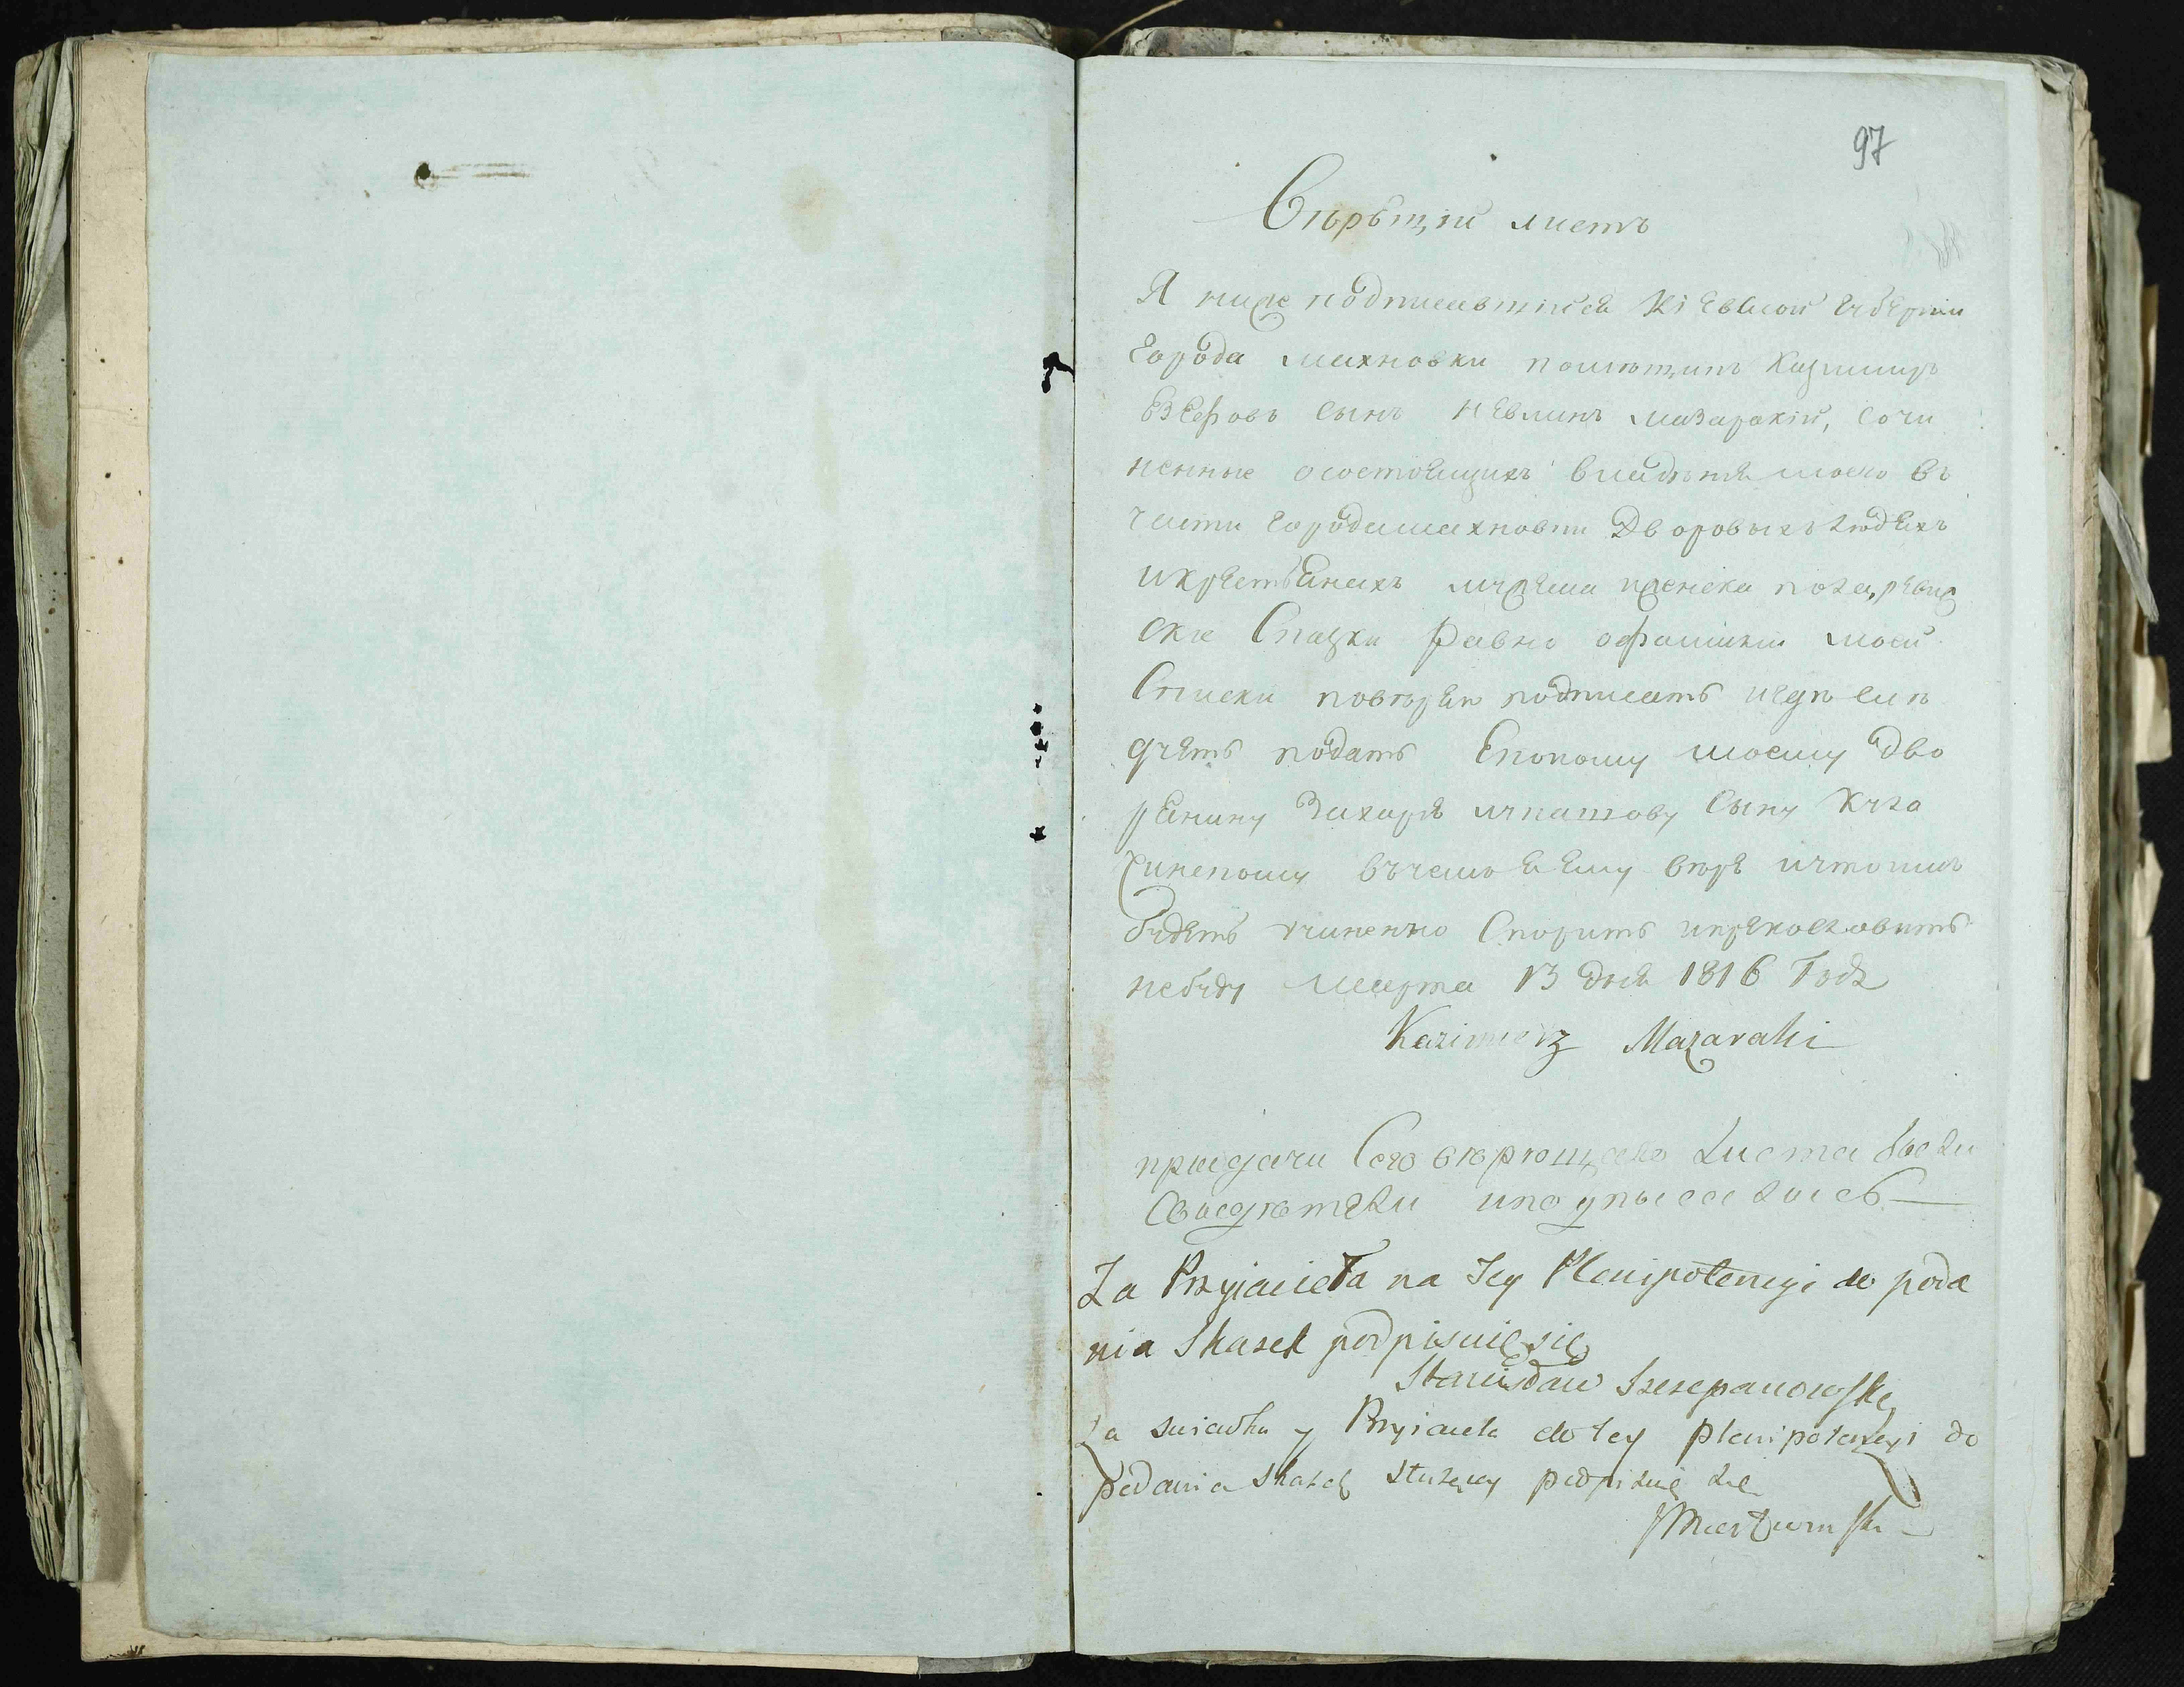 97
Вѣрѣщій листъ
Я ниже подписавшійся Кіевской губерніи
города Махновки помѣщикъ Казимиръ
сынъ Мазаракій, сочи
ненные осостоящихъ владѣнія моего въ
части города махновки Дворовыхъ людяхъ
икрестьянахъ мужеска иженска пола, ревиж
скіе Сказки равно офамиліи моей
Списки повѣряю подписать игдѣ слѣ
дуетъ подать Економу моему дво
рянину Захарѣ игнатову Сыну
въчемъ я ему вѣрю ичто имъ
будетъ учиненно Спорить ипрекословить
небуду Марта 13 дня 1816 Года
Kazimierz Mazaraki
придачи Сего вѣрющаго Листа были
Свидѣтели иподписалась
Za Przyjaciela na Tey Plenipotencyi do poda
nia Skazek podpisuię się
Stanisław Szczepanowski
Za swiadka y Przyiaciela do tey plenipotencyi do
podania skazek służącey podpisuię się